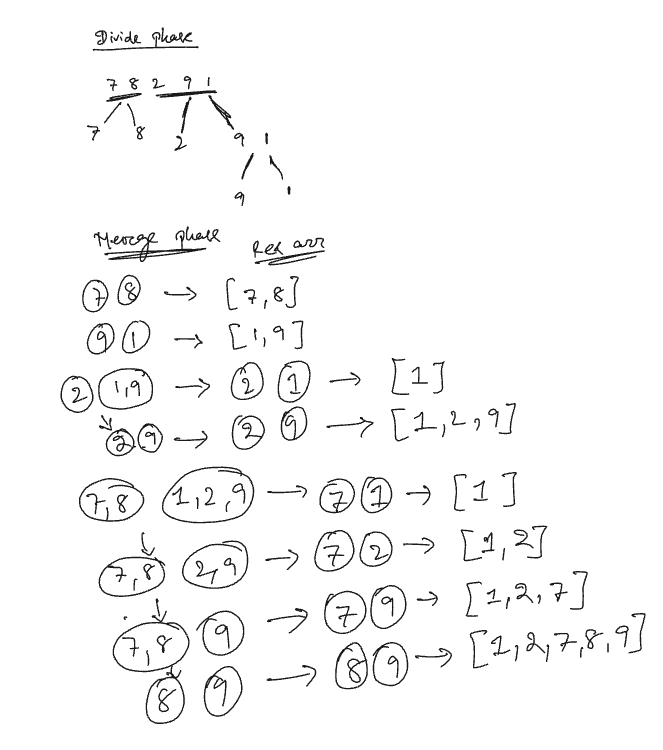 Divide phase
7 8 2 9 1
7 8 2 9 1
9 1
Merge phase Res arr
7 8 → [7,8]
9 1 → [1,9]
2 1,9 → 2 1 → [1]
2 9 → 2 9 → [1,2,9]
7,8 1,2,9 → 7 1 → [1]
7,8 2,9 → 7 2 → [1,2]
7,8 9 → 7 9 → [1,2,7]
8 9 → 8 9 → [1,2,7,8,9]